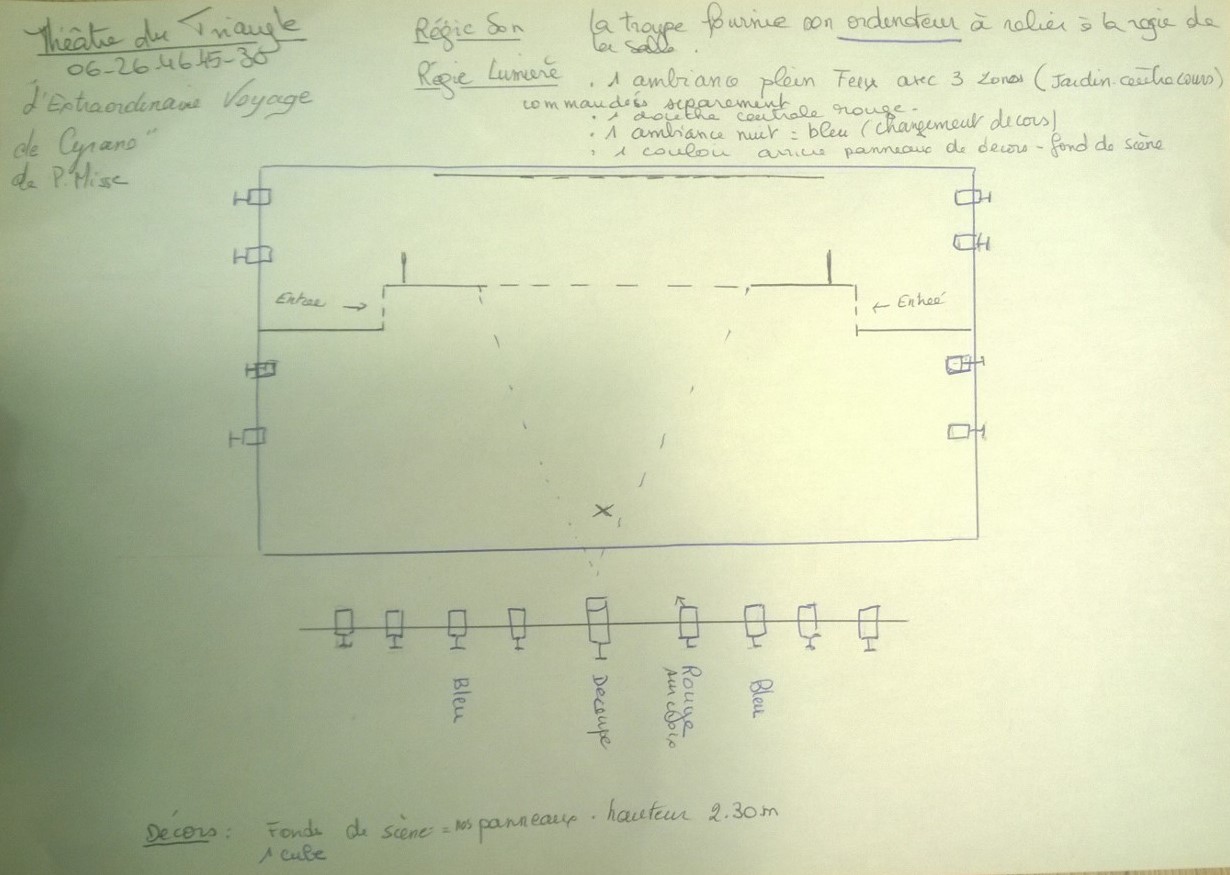 Théâtre du Triangle
06-26-46-45-30
L'Extraordinaire Voyage
de Cyrano"
de P. Misse
Régie Son
La troupe fournie son ordenateur à reliés à la regie de
la salle.
Régie Lumière
. 1 ambiance plein Feux avec 3 zones (Jardin-centre cours)
commandées séparement
. 1 douche centrale rouge.
. 1 ambiance nuit = bleu (changement decors)
. 1 couloir arriere panneaux de decors - fond de scène
Entree →
← Entreé
Bleu
Decoupe
Rouge
sur croix
Bleu
Décors :
Fonds de scène = nos panneaux . hauteur 2.30m
1 cube